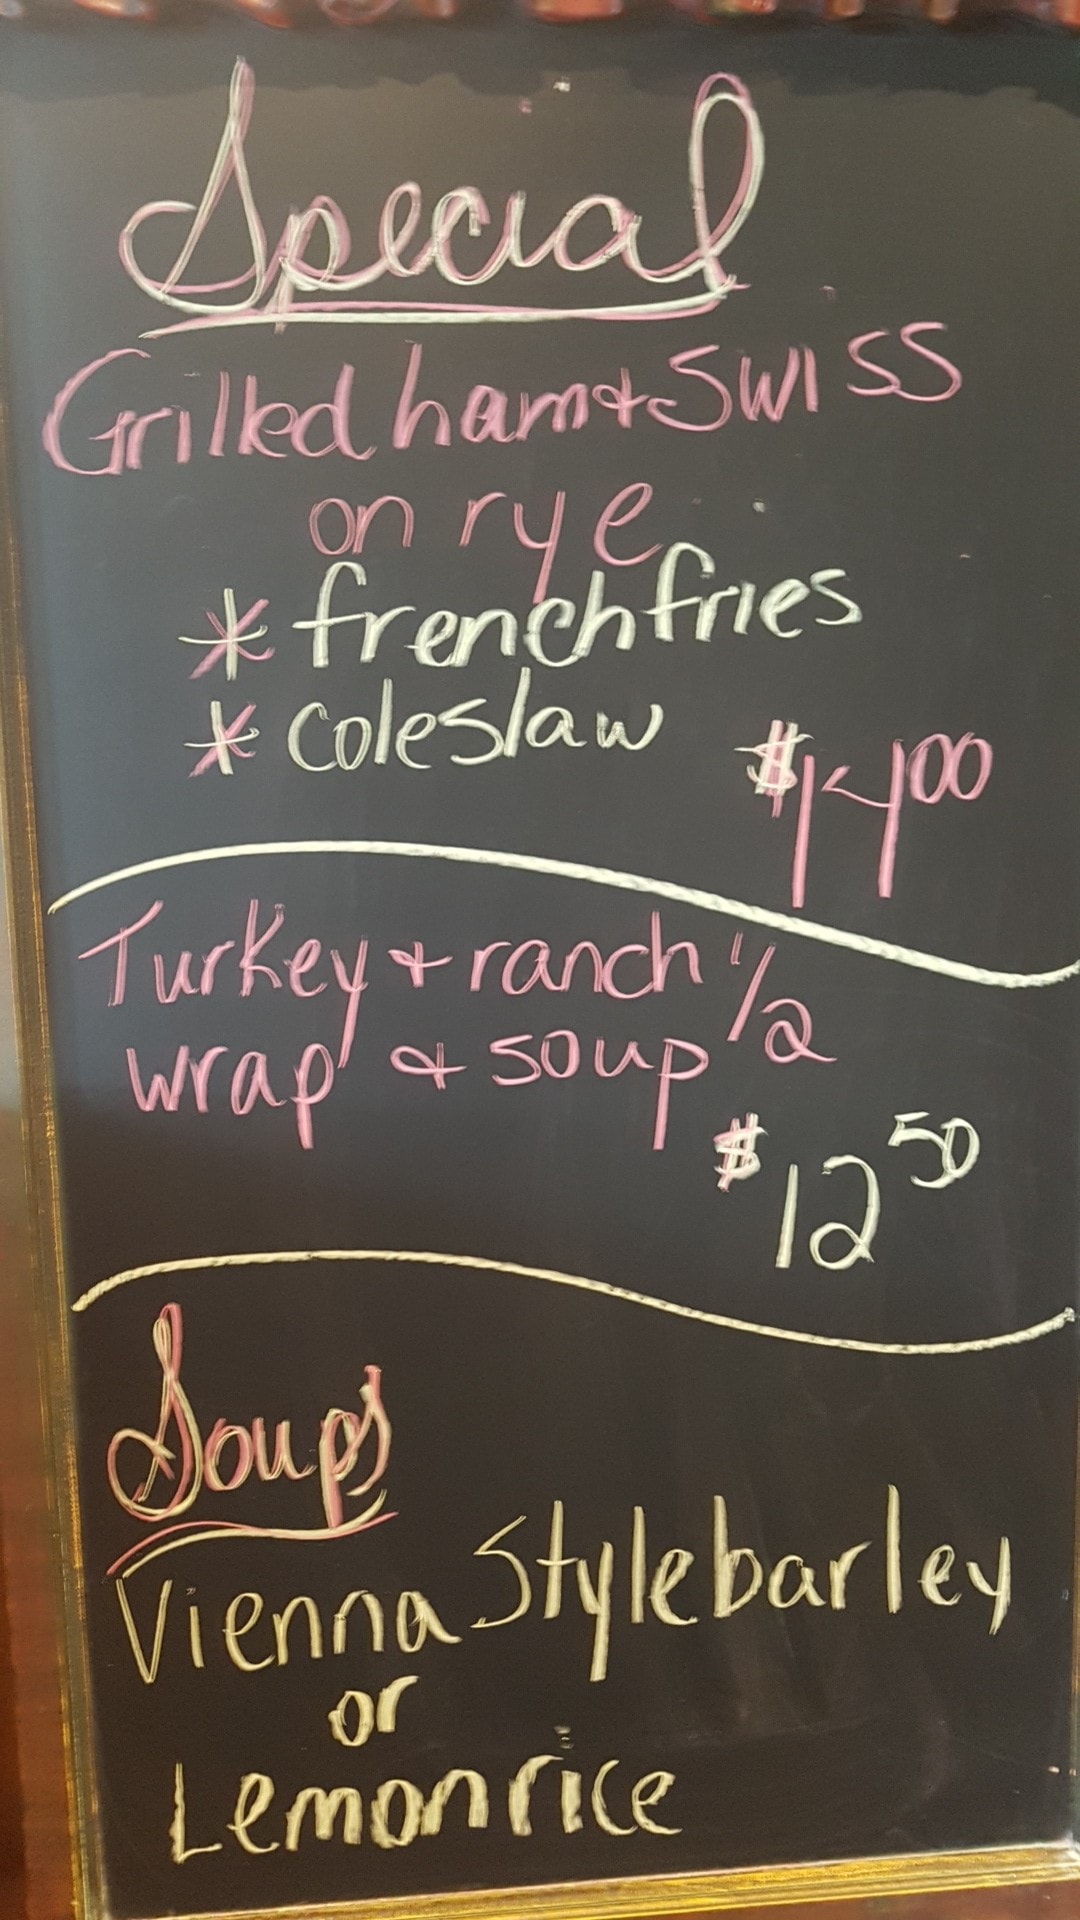 Special
Grilled ham & Swiss
on rye
* french fries
* coleslaw
$14.00
Turkey & ranch 1/2
wrap & soup
$12.50
Soups
Vienna Style barley
or
Lemon rice